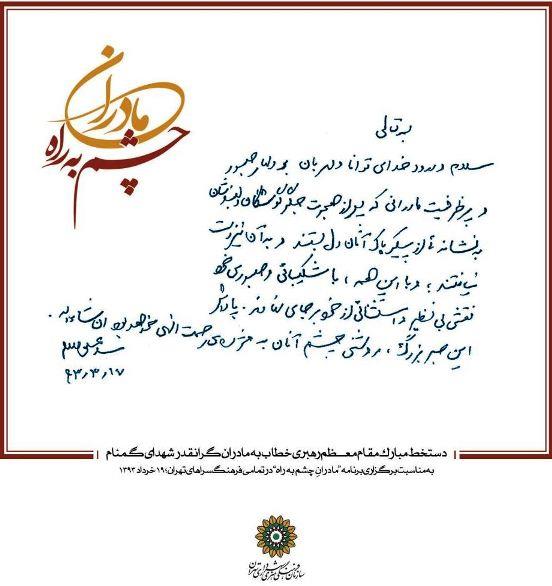 مادران
چشم به راه
بسمه تعالی
سلام و درود خدای توانا و مهربان به دلهای صبور
و پرظرفیت مادرانی که پس از هجرت جگرگوشگان و دلبندشان
به نشانه‌ای از پیکر پاک آنان دل بستند و به آن نیز دست
نیافتند، و با این همه، با شکیبائی و صبوری خود
نقشی بی‌نظیر و استثنائی از خود بر جای نهادند. پاداش
این صبر بزرگ، روشنی چشم آنان به رحمت الهی خواهد بود ان‌شاءالله.
سید علی خامنه‌ای
۹۳،۳،۱۷
دستخط مبارک مقام معظم رهبری خطاب به مادران گرانقدر شهدای گمنام
به مناسبت برگزاری برنامه "مادران چشم به راه" در تمامی فرهنگسراهای تهران؛ ۱۹ خرداد ۱۳۹۳
سازمان فرهنگی هنری شهرداری تهران